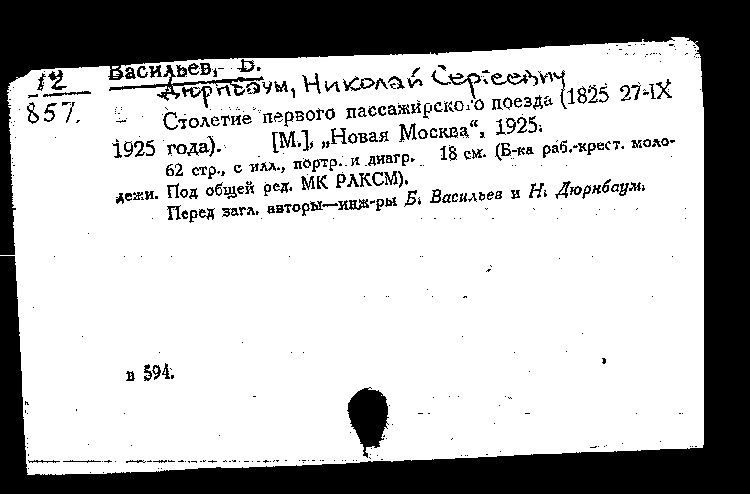 12
857.
Васильев, Б.
Дюрнбаум, Николай Сергеевич
Столетие первого пассажирского поезда (1825 27-IX
1925 года). [М.], „Новая Москва“, 1925.
62 стр., с илл., портр. и диагр. 18 см. (Б-ка раб.-крест. моло-
дежи. Под общей ред. МК РЛКСМ).
Перед загл. авторы—инж-ры Б. Васильев и Н. Дюрнбаум.
в 594.